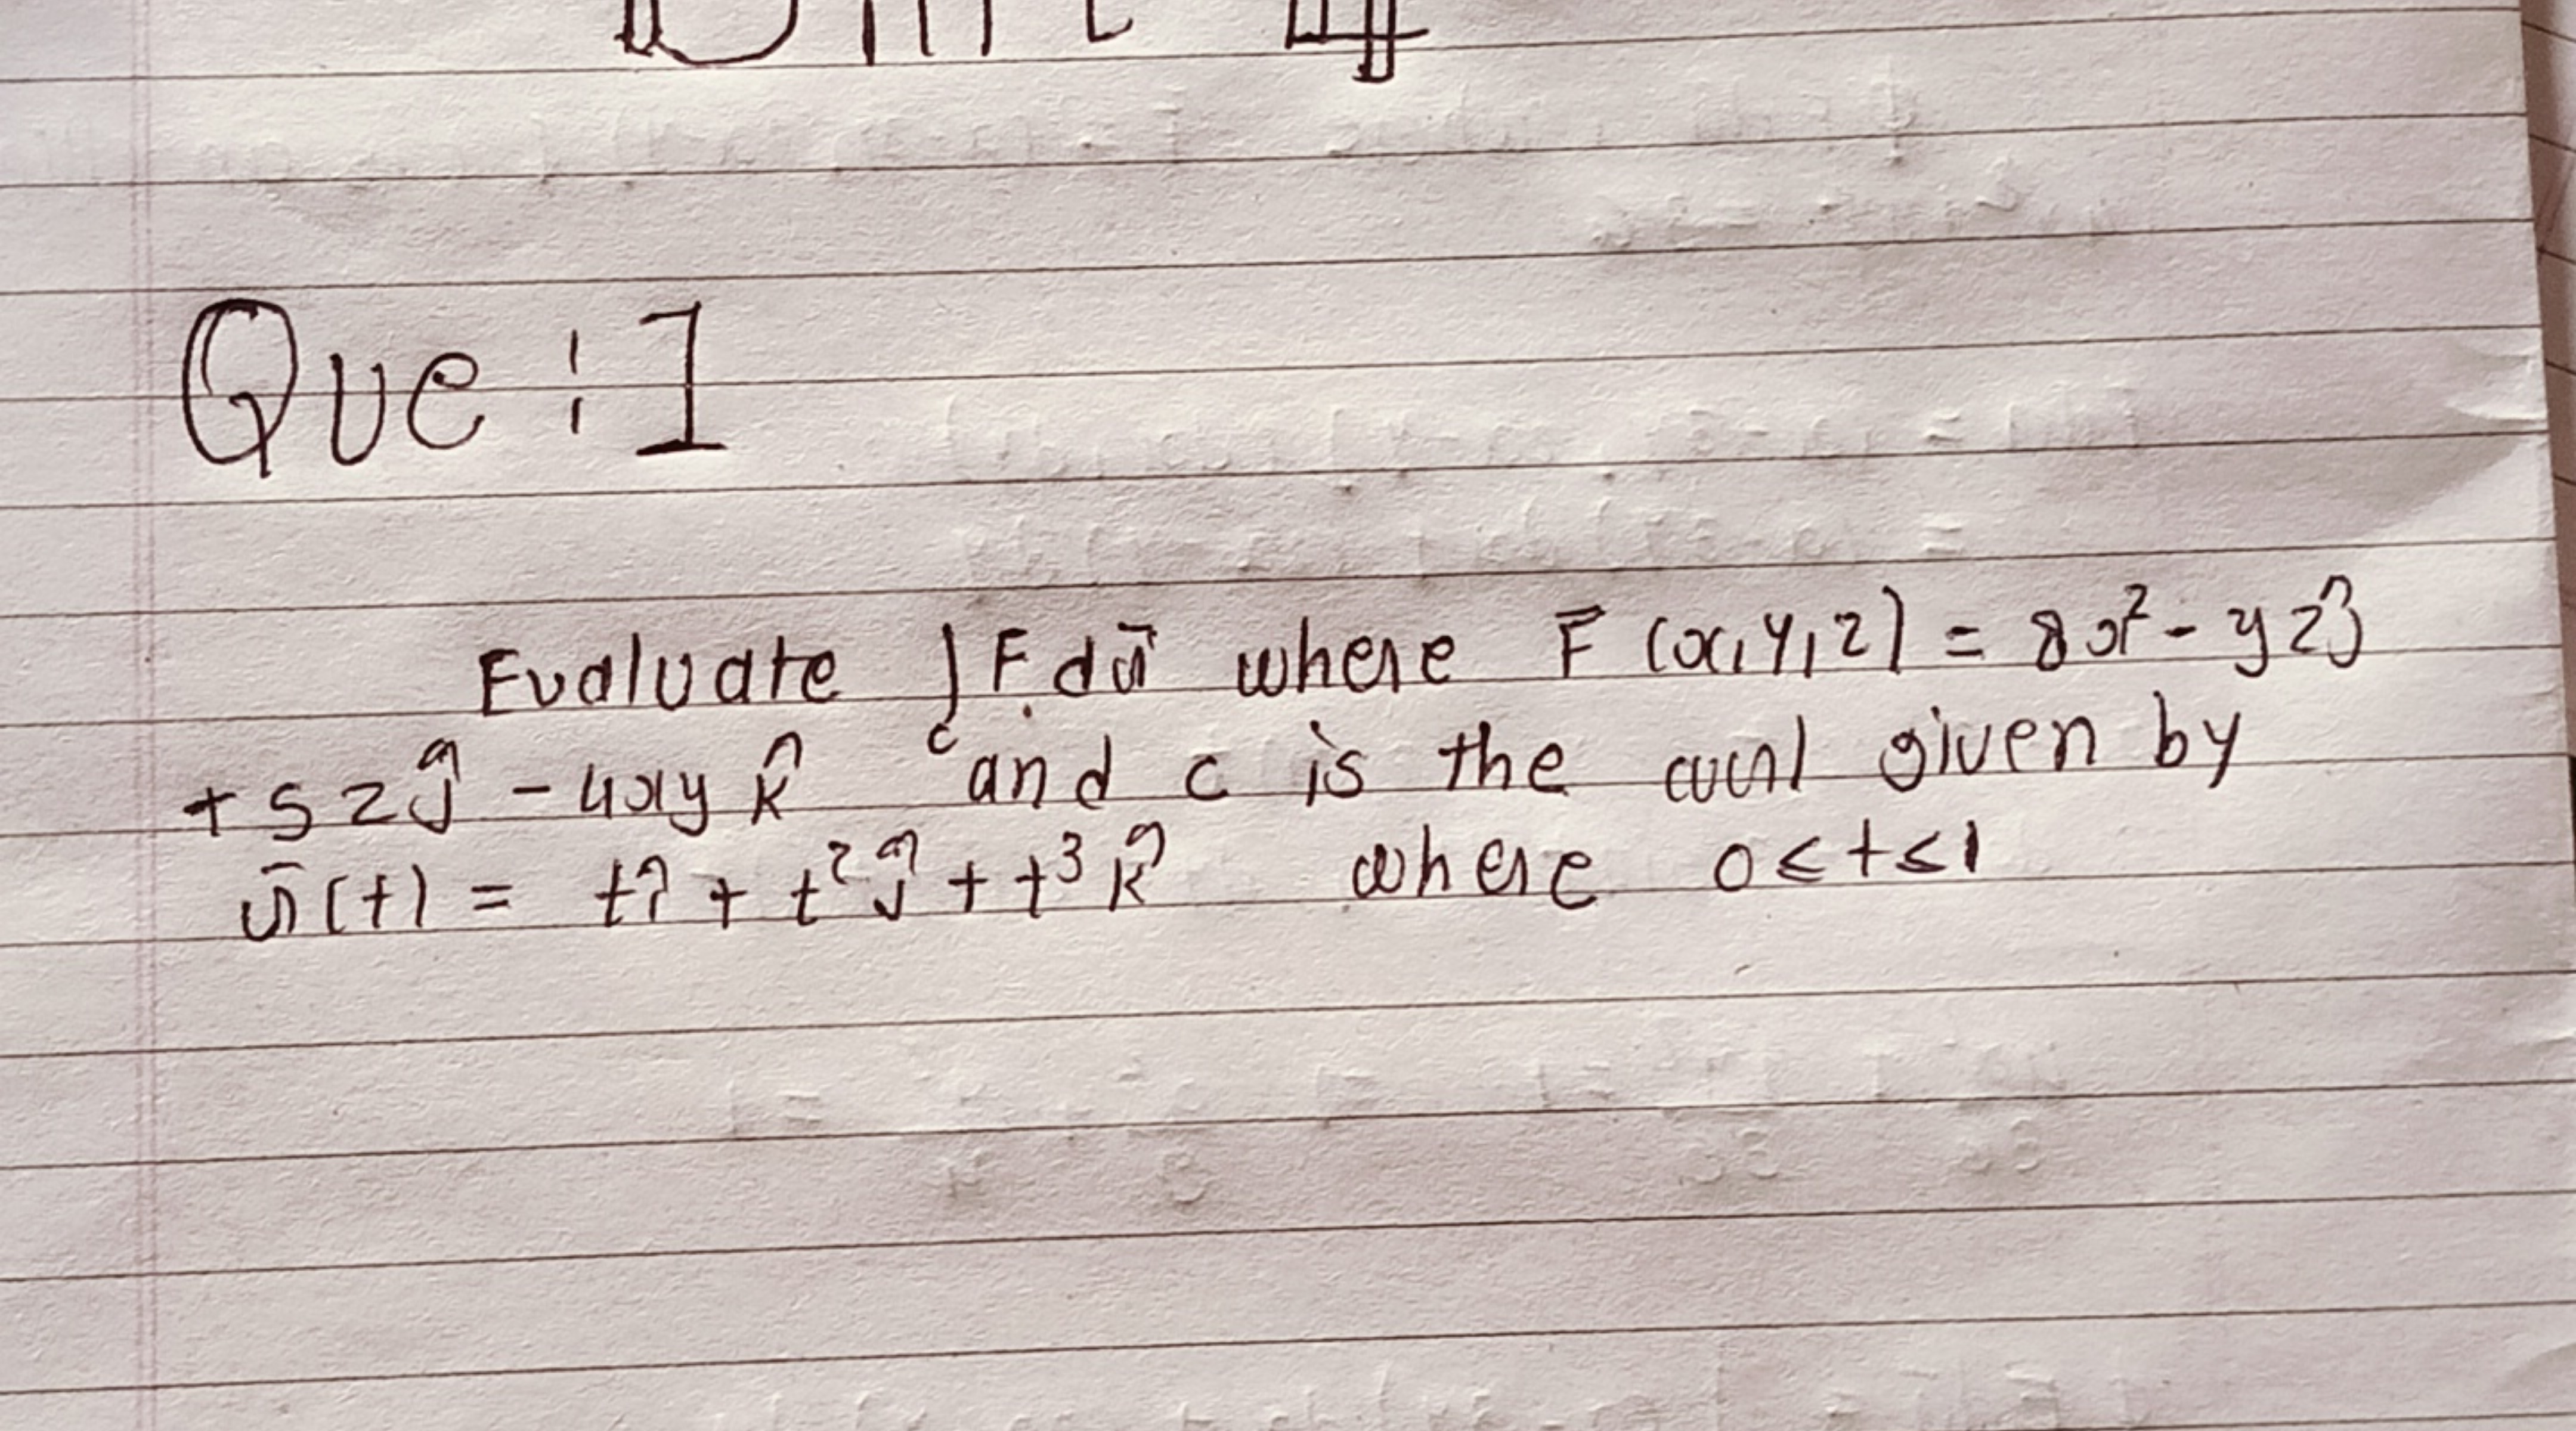 Unit 4
Que : 1
Evaluate ∫c F̄ dr̄ where F̄ (x,y,z) = 8x² - yzî
+ 5zĵ - 4xy k̂ and c is the given by
r̄(t) = tî + t²ĵ + t³ k̂ where 0≤t≤1